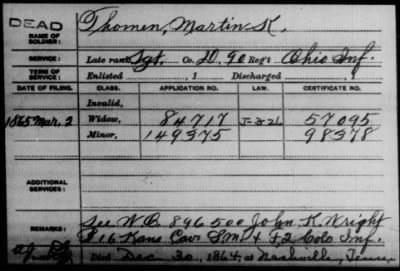 DEAD
NAME OF SOLDIER: Thomen, Martin K.
SERVICE: Late rank Sgt, Co. D, 90 Reg't Ohio Inf.
TERM OF SERVICE: Enlisted , 1 Discharged , 1
DATE OF FILING. CLASS. APPLICATION NO. LAW. CERTIFICATE NO.
Invalid,
1865 Mar. 2 Widow, 84717 57095
Minor, 149375 98378
ADDITIONAL SERVICES:
See W.C. 896500 John K. Wright
REMARKS: F 16 Kans Cav S.M. & F, 2 Colo Inf.
Died Dec. 30, 1864, at Nashville, Tenn.